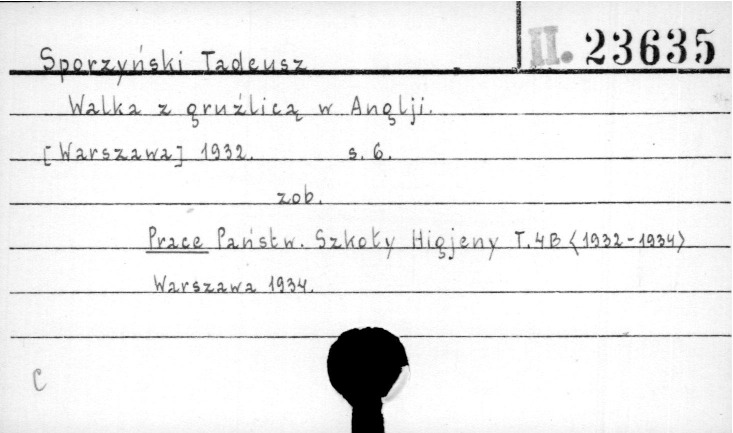 II. 23635
Sporzyński Tadeusz
Walka z gruźlicą w Anglji.
[Warszawa] 1932. s. 6.
zob.
Prace Państw. Szkoły Higjeny T. 4B <1932-1934>
Warszawa 1934.
C